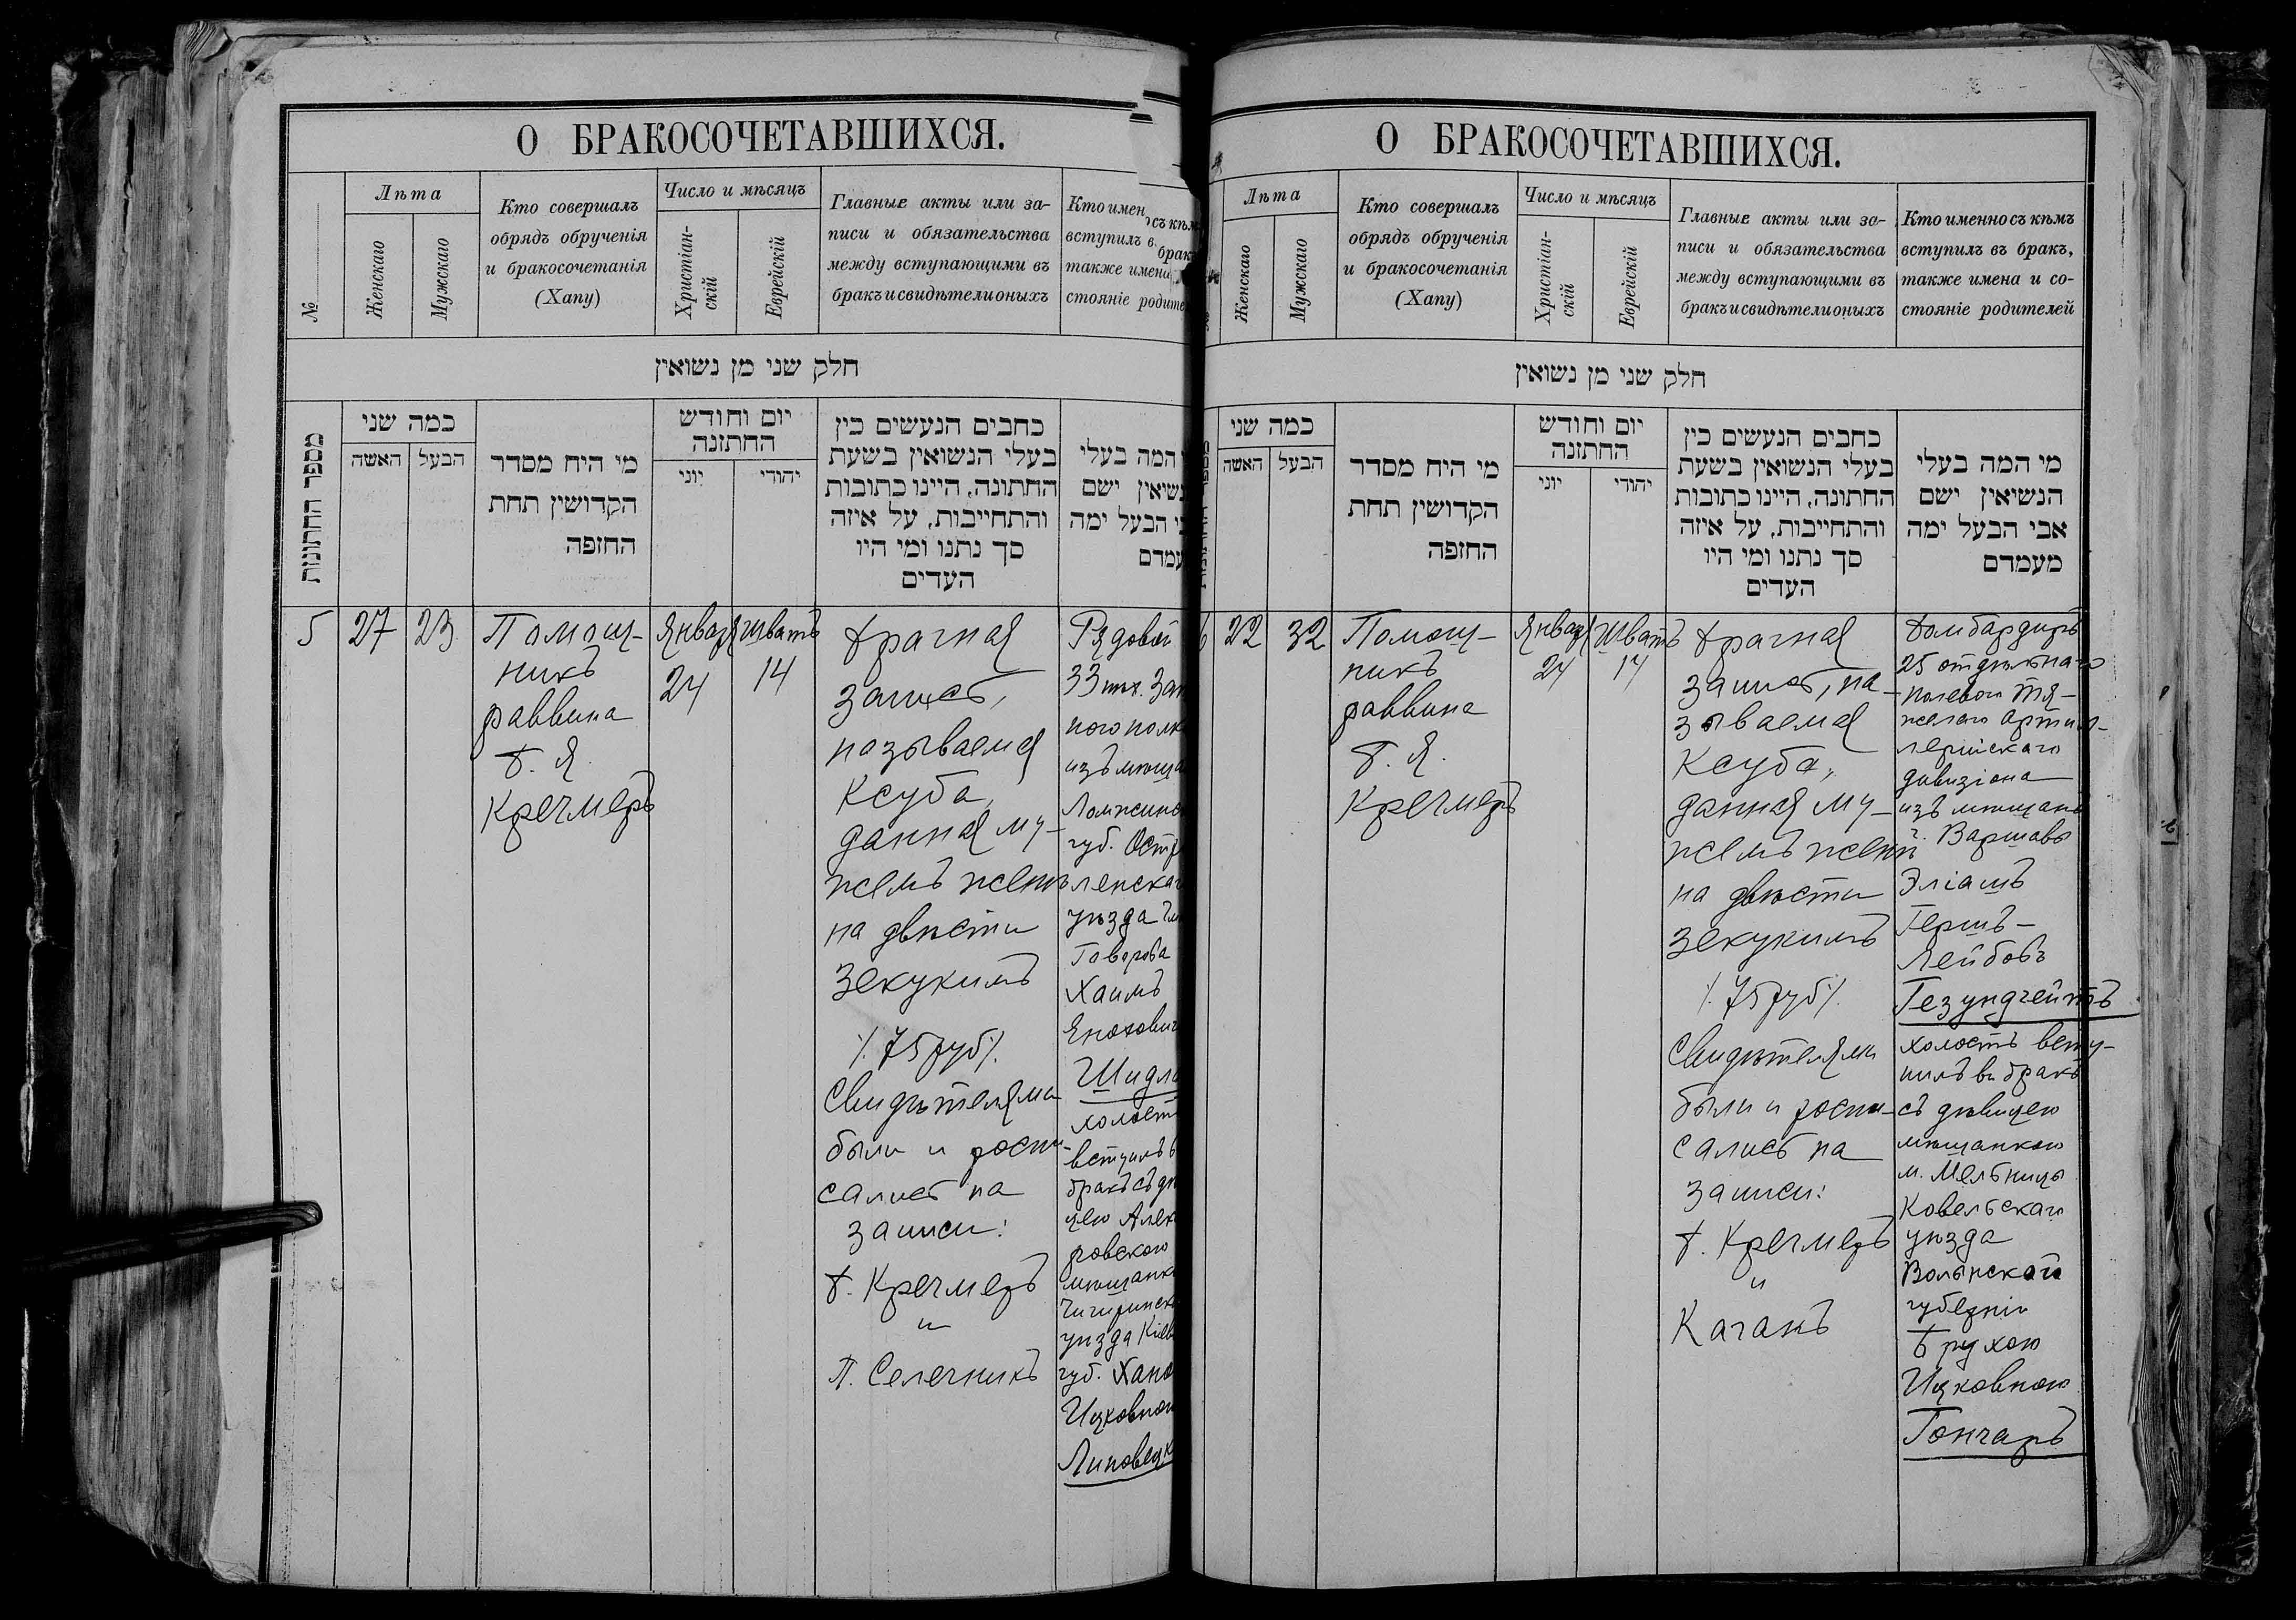 О БРАКОСОЧЕТАВШИХСЯ.
№
Лѣта
Женскаго
Мужскаго
Кто совершалъ
обрядъ обрученія
и бракосочетанія
(Хапу)
Число и мѣсяцъ
Христіан-
скій
Еврейскій
Главные акты или за-
писи и обязательства
между вступающими въ
бракъ и свидѣтели оныхъ
Кто имен
съ кѣмъ
вступилъ в
брак
также имена
стояніе родите
חלק שני מן נשואין
מספר החתונות
כמה שני
האשה
הבעל
מי היח מסדר
הקדושין תחת
החזפה
יום וחודש
החתזנה
יוני
יהודי
כחבים הנעשים כין
בעלי הנשואין בשעת
החתונה, היינו כתובות
והתחייבות, על איזה
סך נתנו ומי היו
העדים
המה בעלי
נשיאין ישם
י הבעל ימה
עמדם
5
27
23
Помощ-
никъ
раввина
Б. Я.
Кречмеръ
Января
24
Шватъ
14
Брачная
запись,
называемая
Ксуба,
данная му-
жемъ женѣ
на двѣсти
Зекукимъ
/. 75 руб /.
Свидѣтелями
были и роспи-
сались на
записи:
Б. Кречмеръ
и
П. Селечникъ
Рядовой
33 пѣх. Зап
ного полк
изъ мѣща
Ломжинс
губ. Остр
ленскаг
уѣзда
Говорова
Хаимъ
Енохович
Шидл
холост
вступилъ в
бракъ съ дѣ
цею Алек
ровскою
мѣщанк
Чигиринск
уѣзда Кіев
губ. Хано
Ицковною
Липовецк
О БРАКОСОЧЕТАВШИХСЯ.
Лѣта
Женскаго
Мужскаго
Кто совершалъ
обрядъ обрученія
и бракосочетанія
(Хапу)
Число и мѣсяцъ
Христіан-
скій
Еврейскій
Главные акты или за-
писи и обязательства
между вступающими въ
бракъ и свидѣтели оныхъ
Кто именно съ кѣмъ
вступилъ въ бракъ,
также имена и со-
стояніе родителей
חלק שני מן נשואין
כמה שני
האשה
הבעל
מי היח מסדר
הקדושין תחת
החזפה
יום וחודש
החתזנה
יוני
יהודי
כחבים הנעשים כין
בעלי הנשואין בשעת
החתונה, היינו כתובות
והתחייבות, על איזה
סך נתנו ומי היו
העדים
מי המה בעלי
הנשיאין ישם
אבי הבעל ימה
מעמדם
6
22
32
Помощ-
никъ
раввина
Б. Я.
Кречмеръ
Января
24
Шватъ
14
Брачная
запись, на-
зываемая
Ксуба,
данная му-
жемъ женѣ
на двѣсти
Зекукимъ
/. 75 руб /.
Свидѣтелями
были и роспи-
сались на
записи:
Б. Кречмеръ
и
Каганъ
Бомбардиръ
25 отдѣльнаго
полевого тя-
желаго артил-
лерійскаго
дивизіона
изъ мѣщанъ
г. Варшавы
Эліашъ
Гершъ-
Лейбовъ
Гезундгейтъ
холостъ всту-
пилъ въ бракъ
съ дѣвицею
мѣщанкою
м. Мельницы
Ковельскаго
уѣзда
Волынской
губерніи
Брухою
Ицковною
Гончаръ